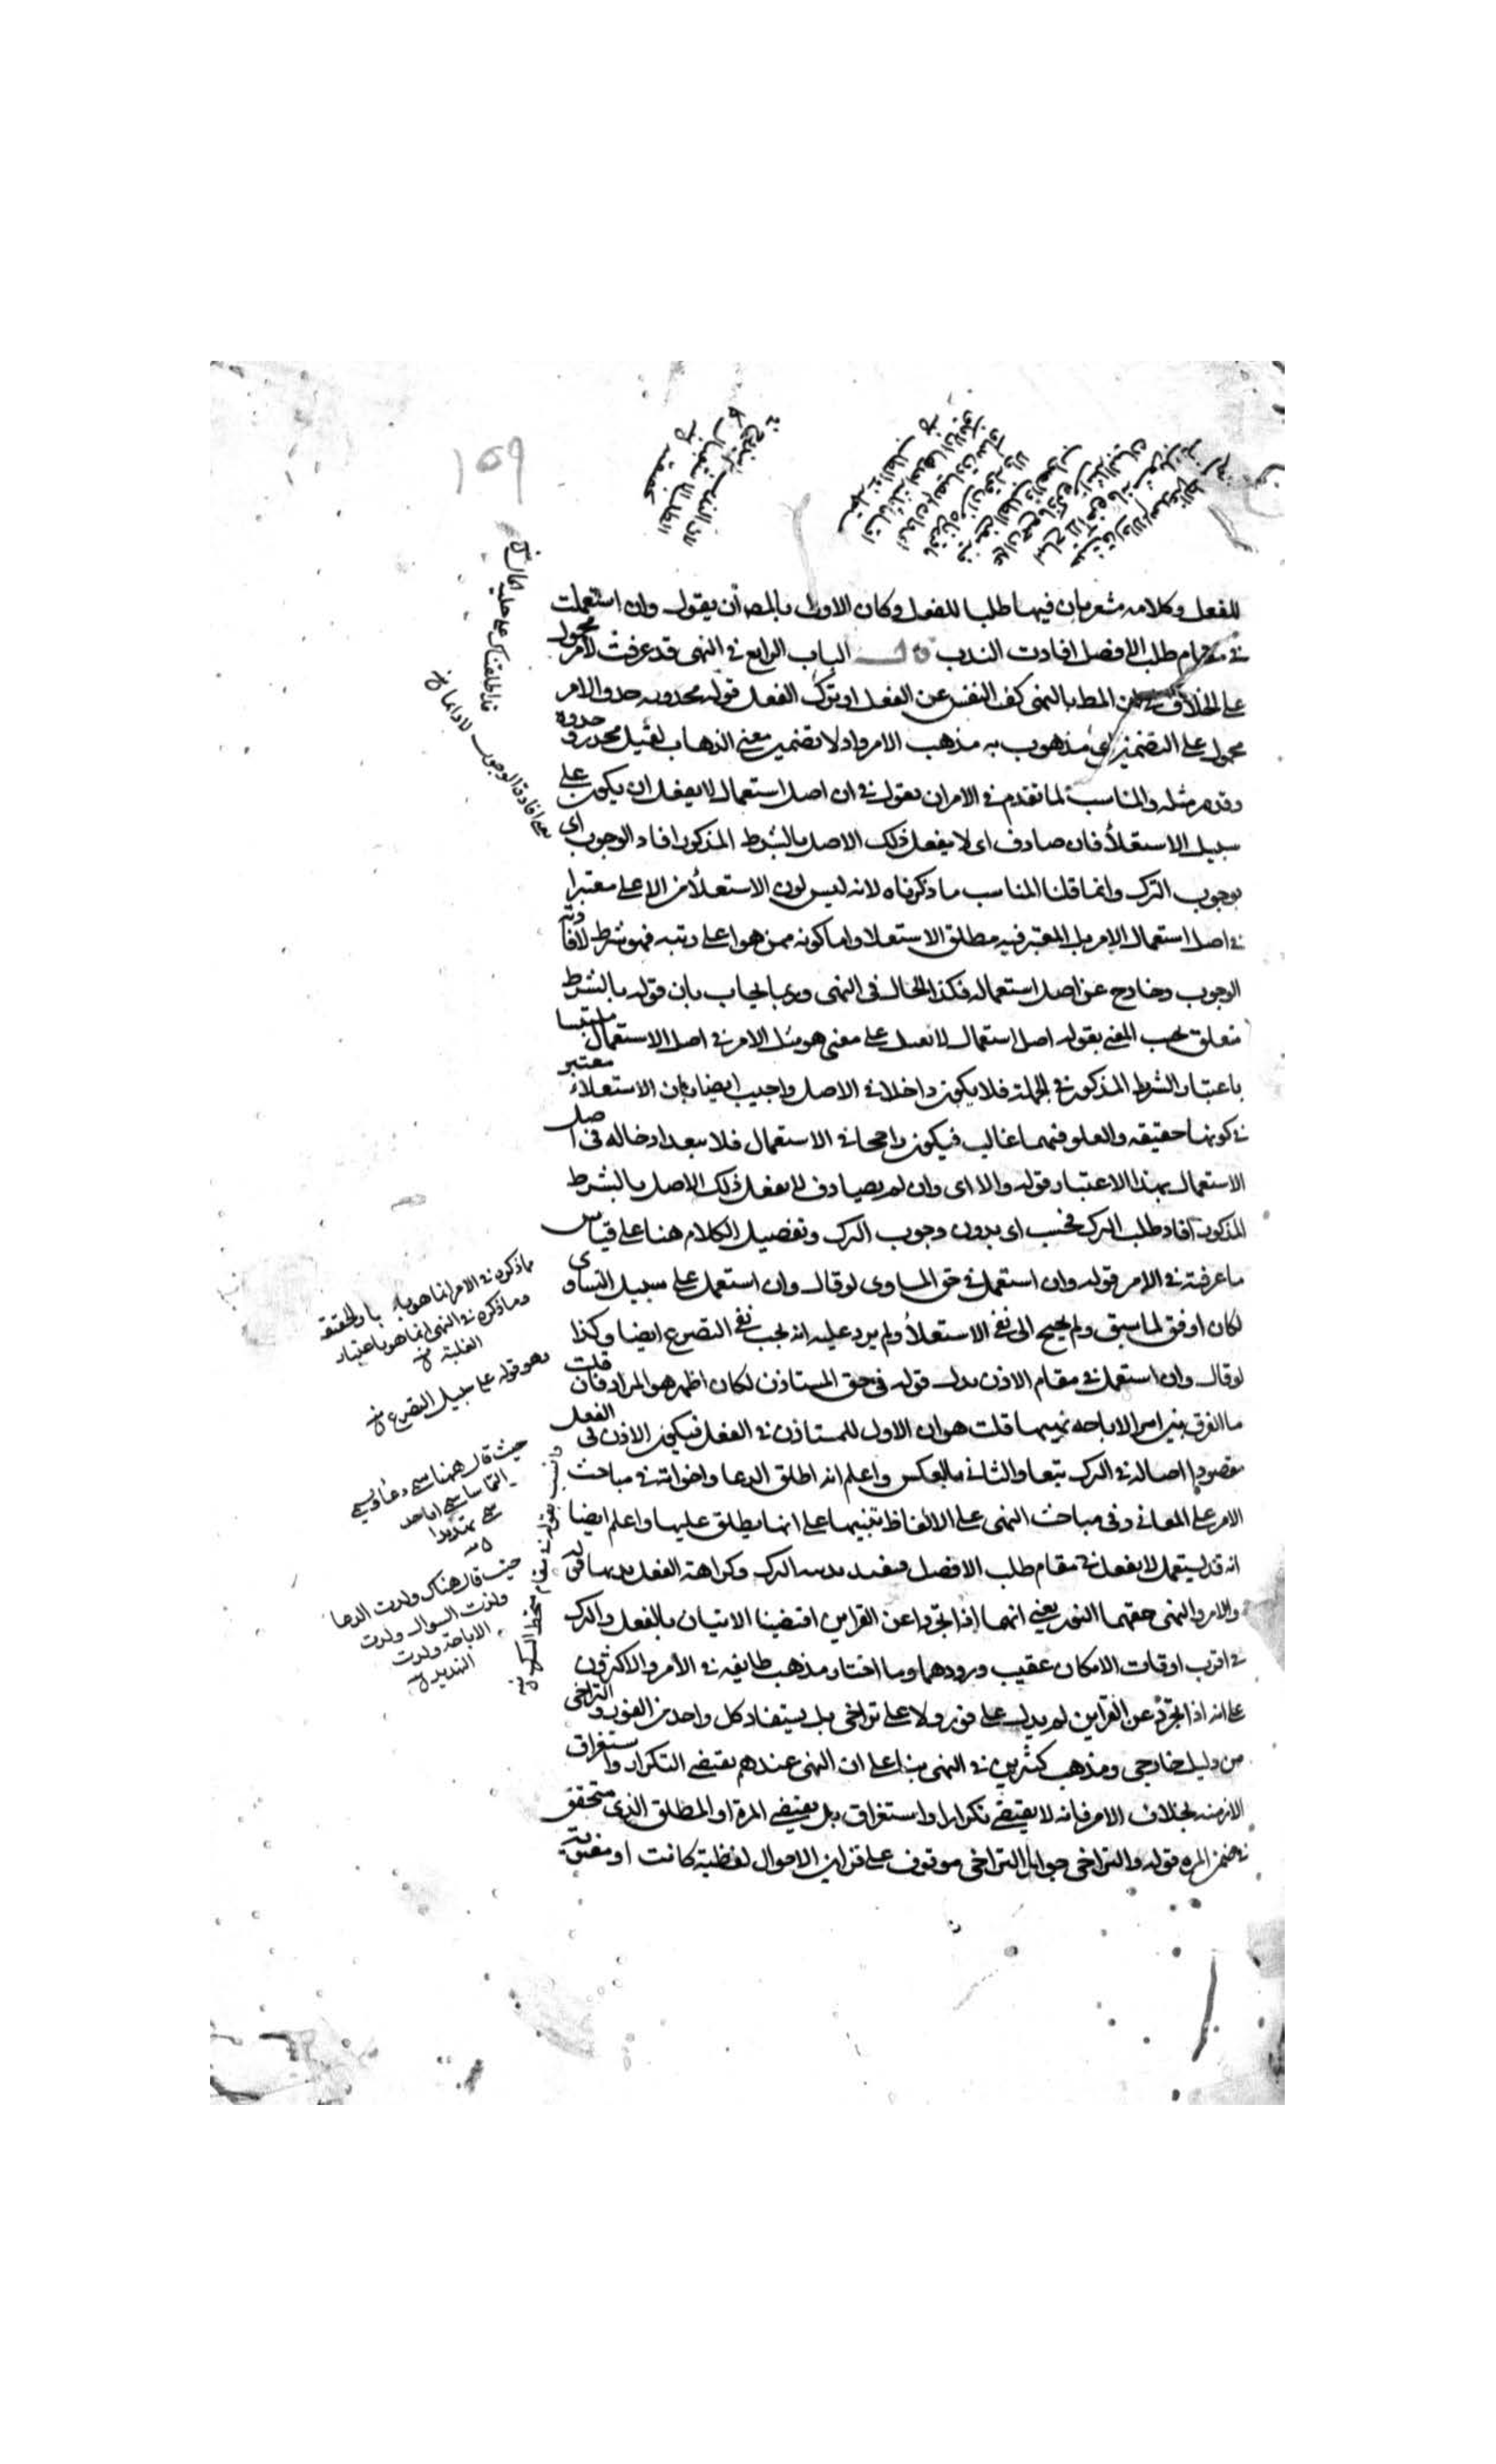 159
للفعل وكلامه مشعر بان فيها طلبا للفعل وكان الاولى بالمص أن يقول وان استعملت
في مقام طلب الافضل افادت الندب قال الباب الرابع في النهي قد عرفت لامر
على الخلاف في ان المط بالنهي كف النفس عن الفعل او ترك الفعل قوله محدو به حدو الامر محمول
محمول على التضمين اي مذهوب به مذهب الامر ولولا تضمين معنى الذهاب لقيل محدو حدوه
وقد مر مثله والمناسب لما تقدم في الامر ان يقول في ان اصل استعمال لا يفعل ان يكون على
سبيل الاستعلأ فان صادف اى لا يفعل ذلك الاصل بالشرط المذكور افاد الوجوب اى
بوجوب الترك وانما قلنا المناسب ما ذكرناه لانه ليس لون الاستعلأ من الاعلى معتبرا
في اصل استعمال الامر بل المعتبر فيه مطلق الاستعلا واما كونه ممن هو اعلى رتبه فهو شرط لافادته
الوجوب وخارج عن اصل استعماله فكذا الحال فى النهى وربما يجاب بان قوله بالشرط
متعلق بحسب المعنى بقوله اصل استعمال لا تفعل على معنى هو مثل الامر في اصل الاستعمال ملتبسا
باعتبار الشرط المذكور في الجملة فلا يكون داخلا في الاصل واجيب ايضا بان الاستعلاء معتبر
في كونها حقيقه والعلو فيهما غالب فيكون راجحا في الاستعمال فلا يبعد ادخاله فى اصل
الاستعمال بهذا الاعتبار قوله والا اى وان لم يصادف لا يفعل ذلك الاصل بالشرط
المذكور افاد طلب الترك فحسب اى بدون وجوب الترك وتفصيل الكلام هنا على قياس
ما عرفته في الامر قوله وان استعمل في حق المساوى لو قال وان استعمل على سبيل التساوى
لكان اوفق لما سبق ولم يحتج الى نفى الاستعلأ ولم يرد عليه انه يجب نفى التضرع ايضا وكذا
لو قال وان استعمل في مقام الاذن بدل قوله فى حق المستاذن لكان اظهر هو المراد فان قلت
ما الفرق بين امر الاباحه ونهيها قلت هو ان الاول للمستاذن في الفعل فيكون الاذن فى الفعل
مقصودا اصاله في الترك تبعا والثانى بالعكس واعلم انه اطلق الدعا واخواته في مباحث
الامر على المعانى وفى مباحث النهى على الالفاظ تنبيها على انها يطلق عليها واعلم ايضا
انه قد يستعمل لا يفعل في مقام طلب الافضل فيفيد ندب الترك وكراهة الفعل قوله
والامر والنهى حقهما الفور يعني انهما اذا تجردا عن القراين اقتضينا الاتيان بالفعل والترك
في اقرب اوقات الامكان عقيب ورودهما وما اختار مذهب طايفه في الأمر والاكثرون
على انه اذا تجرد عن القراين لم يدل على فور ولا على تراخى بل يستفاد كل واحد من الفور والتراخى
من دليل خارجى ومذهب كثيرين في النهى بناء على ان النهى عندهم يقتضى التكرار واستغراق
الازمنه بخلاف الامر فانه لا يقتضى تكرارا واستغراق بل يقتضى المرة او المطلق الذى متحقق
في ضمن المره قوله والتراخى جواب التراخى موقوف على قراين الاحوال لفظية كانت او معنوية
فلذا اطلقنا
على افادة الوجوب لا دائما
ما ذكره في الامر انما هو باعتبار الحقيقة
وما ذكره في النهى انما هو باعتبار
الغلبة
وهو قوله على سبيل التضرع
حيث قال ههنا سمى دعا وسمى
التماسا سمى اباحه
سمى تهديدا
حيث قال هناك ولدت الدعا
ولدت السوال ولدت
الاباحة ولدت
التهديد